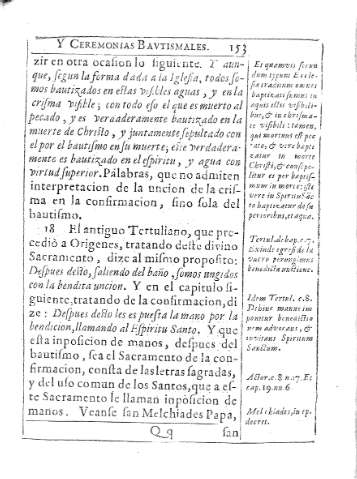 Y CEREMONIAS BAVTISMALES. 153
zir en otra ocasion lo siguiente. Y aun-
que, segun la forma dada a la Iglesia, todos so-
mos bautizados en estas visibles aguas, y en la
crisma visible; con todo eso el que es muerto al
pecado, y es verdaderamente bautizado en la
muerte de Christo, y juntamente sepultado con
el por el bautismo en su muerte; este verdadera-
mente es bautizado en el espiritu, y agua con
virtud superior. Palabras, que no admiten
interpretacion de la uncion de la cris-
ma en la confirmacion, sino sola del
bautismo.
18 El antiguo Tertuliano, que pre-
cediò a Origenes, tratando deste divino
Sacramento, dize al mismo proposito:
Despues desto, saliendo del baño, somos ungidos
con la bendita uncion. Y en el capitulo si-
guiente, tratando de la confirmacion, di-
ze: Despues desto les es puesta la mano por la
bendicion, llamando al Espiritu Santo. Y que
esta inposicion de manos, despues del
bautismo, sea el Sacramento de la con-
firmacion, consta de las letras sagradas,
y del uso comun de los Santos, que a es-
te Sacramento le llaman inposicion de
manos. Veanse san Melchiades Papa,
Qq san
Et quamvis secun
dum typum Eccle
siæ traditum omnes
baptizati simus in
aquis istis visibili-
bus, & in chrisma-
te visibili: tamen,
qui mortuus est pec
cato, & vere bapti
zatur in morte
Christi, & consepe-
litur ei per baptis-
mum in morte: iste
vere in Spiritu sãc
to baptizatur de su
perioribus, et aqua.
Tertul. de bap. c. 7.
Exinde egressi de la
vacro perungimur
benedicta unctione.
Idem Tertul. c. 8.
Dehinc manus im
ponitur benedictio
nem advocans, &
invitans Spiritum
Sanctum.
Actor. c. 8. n. 17. Et
cap. 19. nu. 6
Melchiades, in ep.
decret.